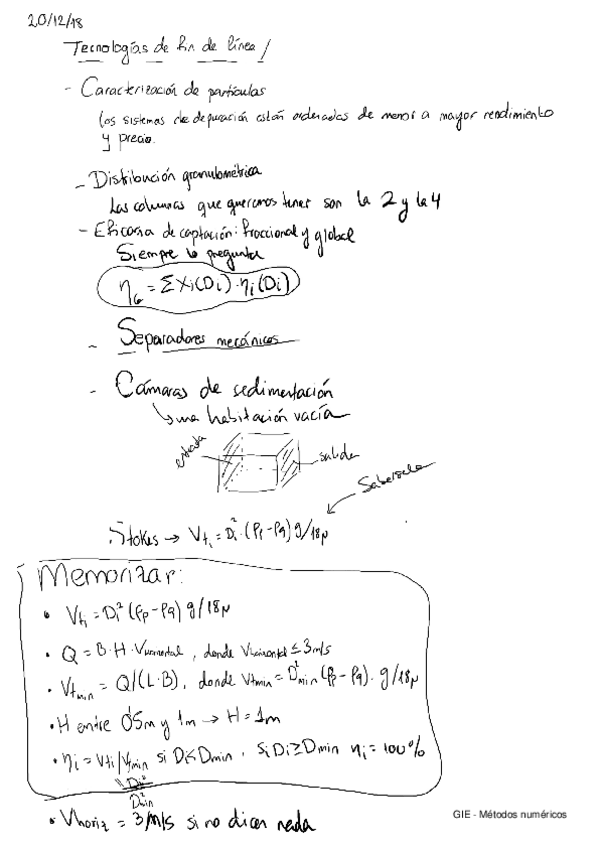 20/12/18
Tecnologías de fin de línea/
- Caracterización de partículas
Los sistemas de depuración están ordenados de menor a mayor rendimiento
y precio.
- Distribución granulométrica
Las columnas que queremos tener son la 2 y la 4
- Eficacia de captación: fraccional y global
Siempre lo pregunta
η_G = Σ Xi(Di)·ηi(Di)
- Separadores mecánicos
- Cámaras de sedimentación
↳ una habitación vacía
entrada
salida
Sabersela
Stokes → V_ti = Di²·(ρp-ρg)g/18μ
Memorizar:
• V_ti = Di²(ρp-ρg)g/18μ
• Q = B·H·Vhorizontal, donde Vhorizontal ≤ 3m/s
• Vtmin = Q/(L·B), donde Vtmin = D²min(ρp-ρg)·g/18μ
• H entre 0'5m y 1m → H = 1m
• ηi = Vti/Vtmin si Di≤Dmin, Si Di≥Dmin ηi = 100%
Di²
D²min
• Vhoriz = 3m/s si no dicen nada
GIE - Métodos numéricos